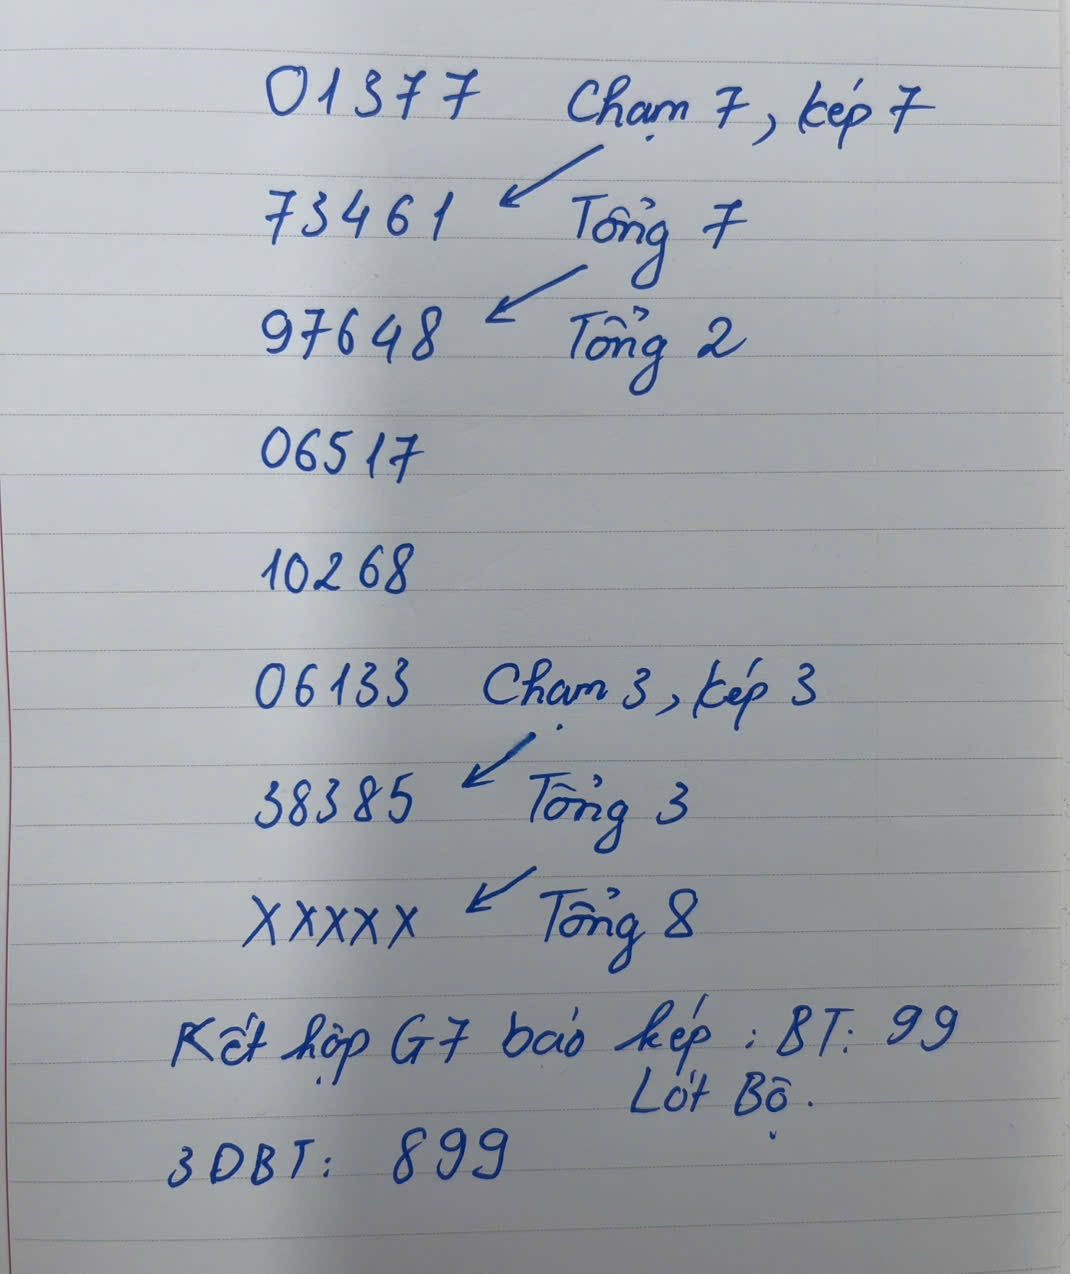 01377 Chạm 7, kép 7
73461 Tổng 7
97648 Tổng 2
06517
10268
06133 Chạm 3, kép 3
38385 Tổng 3
XXXXX Tổng 8
Kết hợp G7 báo kép : BT: 99
Lót Bộ.
3DBT: 899